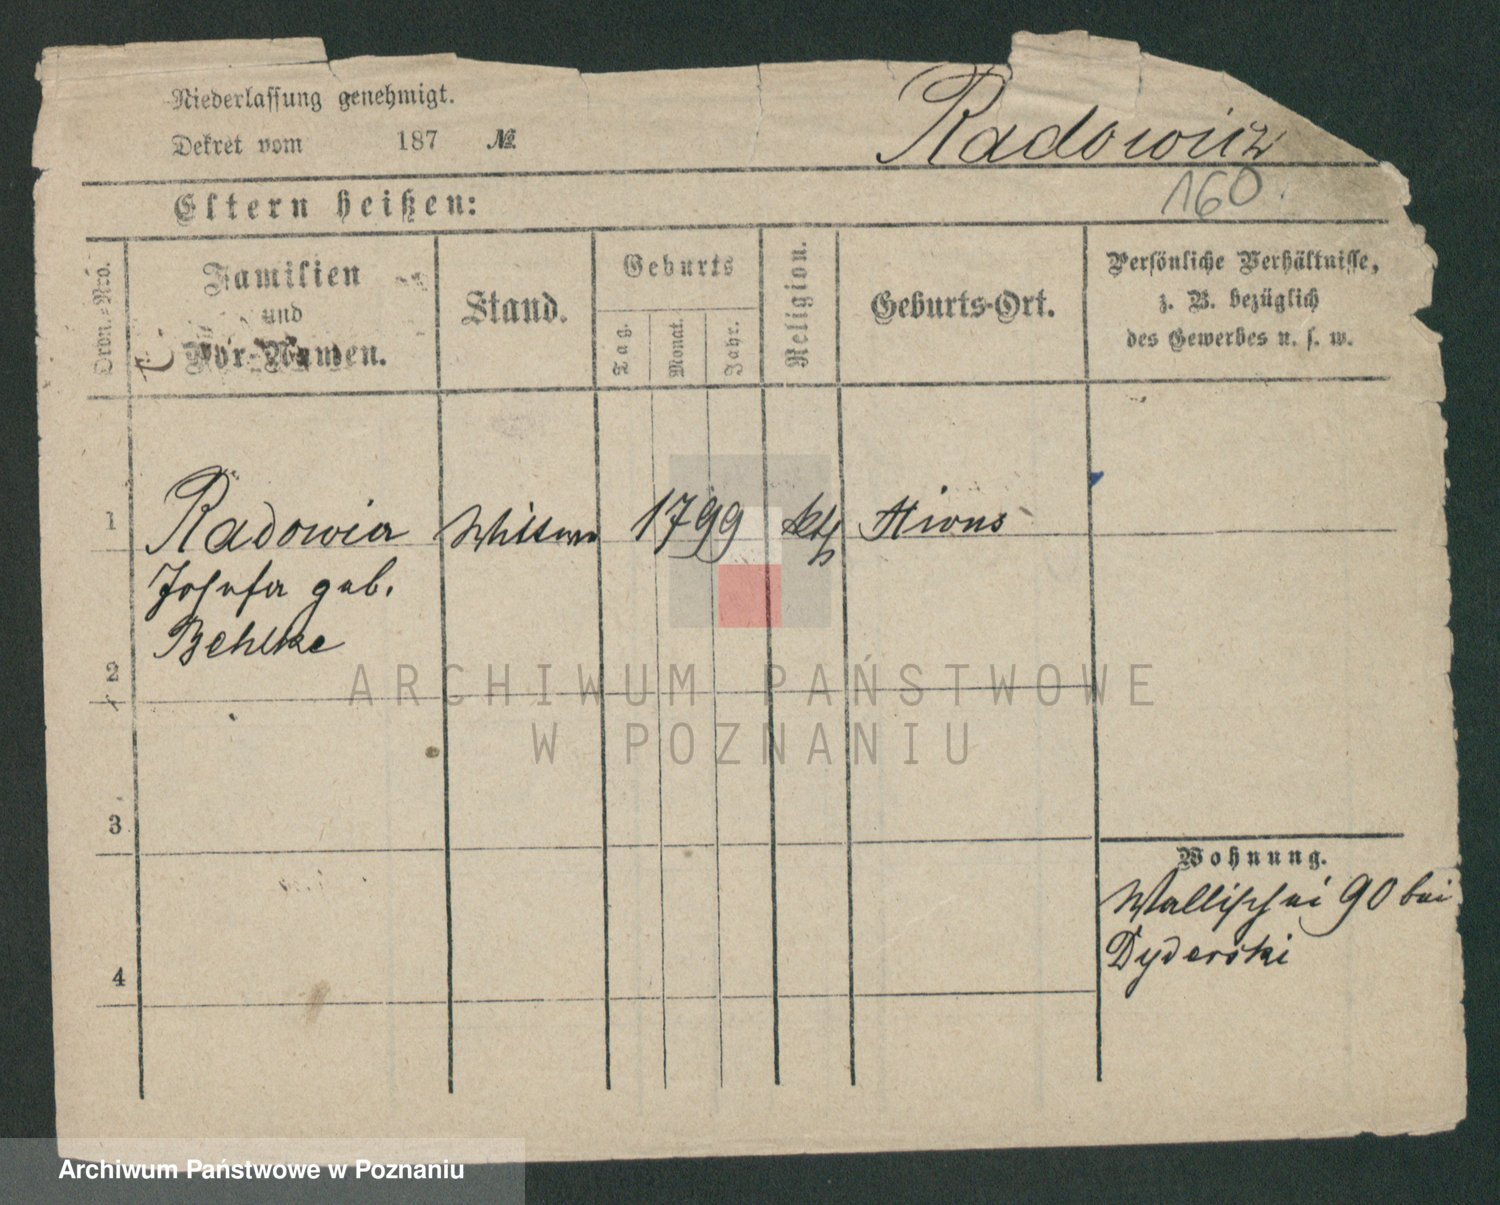 Niederlassung genehmigt.
Dekret vom 187 №
Radowicz
160.
Eltern heißen:
Ordn.-Nro.
Familien
und
Vor-Namen.
Stand.
Geburts
Tag.
Monat.
Jahr.
Religion.
Geburts-Ort.
Persönliche Verhältnisse,
z. B. bezüglich
des Gewerbes u. s. w.
1 Radowicz Wittwe 1799 kth Xions
Josefa geb.
Behlke
2
3
Wohnung.
Wallischei 90 bei
Dyderski
4
ARCHIWUM PAŃSTWOWE
W POZNANIU
Archiwum Państwowe w Poznaniu